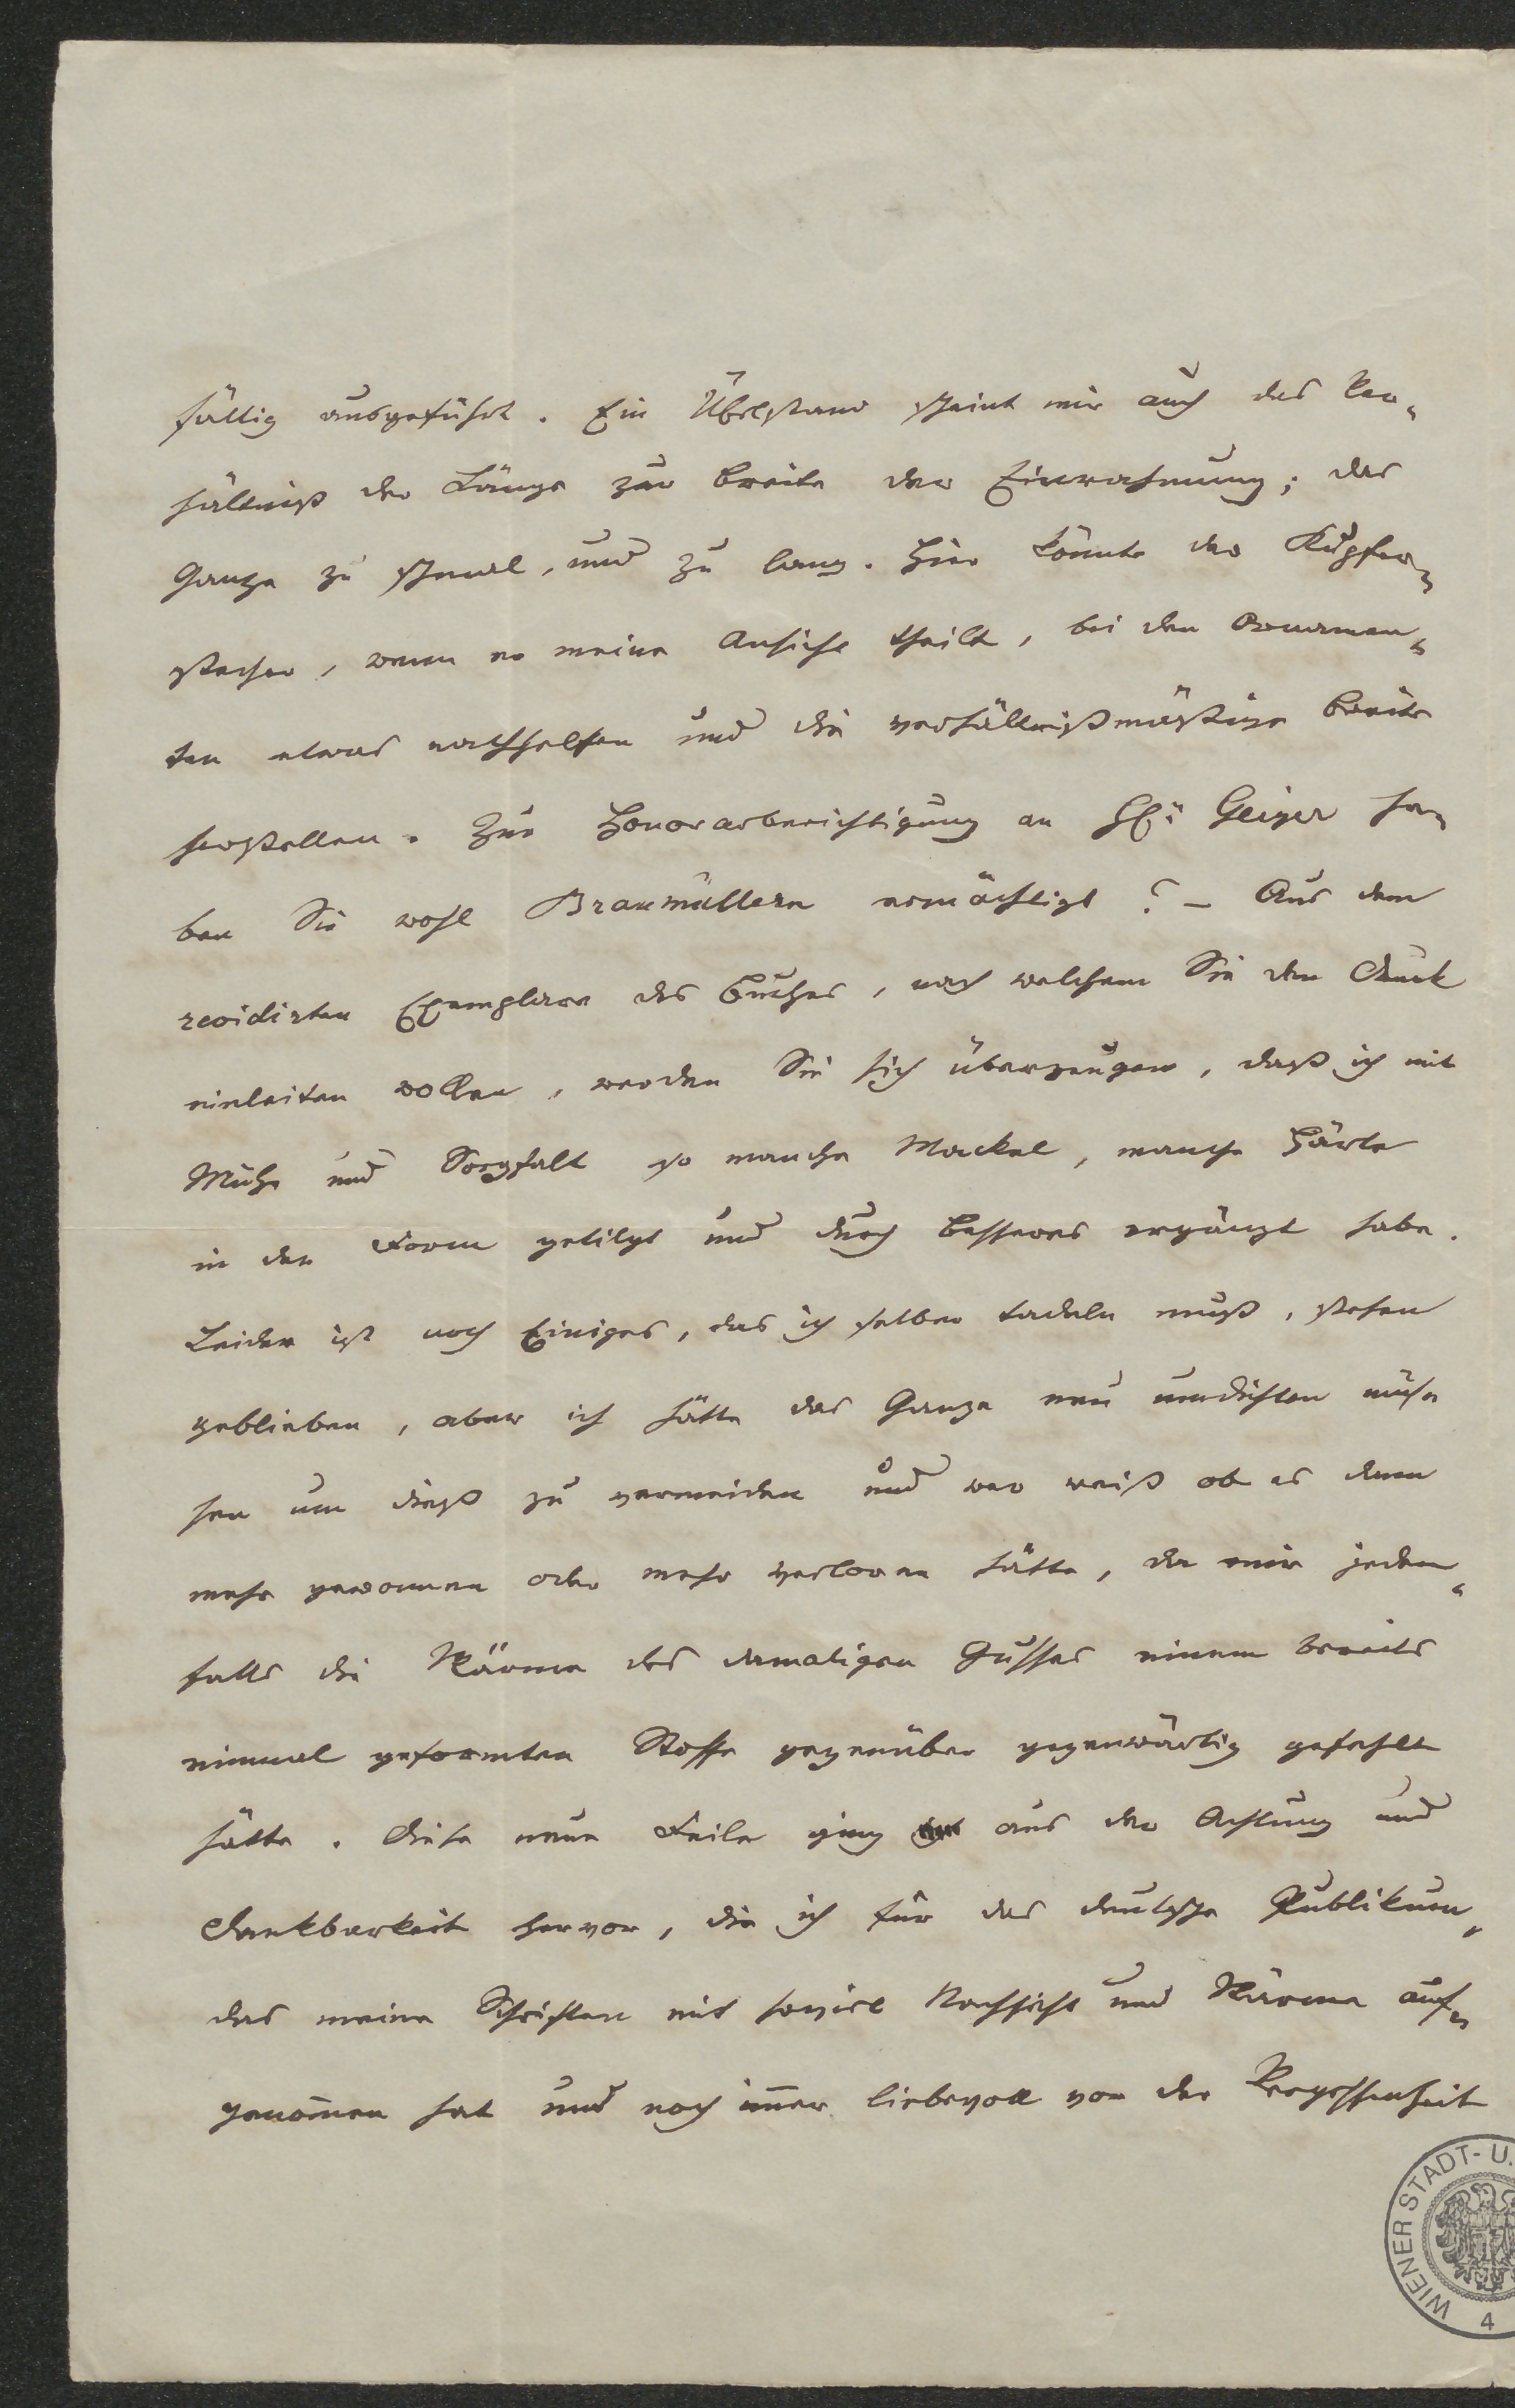 fältig ausgeführt. Ein Übelstand scheint mir auch das Ver-
hältniß der Länge zur Breite der Einrahmung; das
Ganze zu schmal, und zu lang. Hier könnte der Kupfer-
stecher, wenn er meine Ansicht theilt, bei den Ornamen-
ten etwas nachhelfen und die verhältnißmäßige Breite
herstellen. Zur Honorarberichtigung an H: Geiger ha-
ben Sie wohl Braumüllern ermächtigt? – Aus dem
revidirten Exemplare des Buches, nach welchem Sie den Druck
einleiten wollen, werden Sie sich überzeugen, daß ich mit
Mühe und Sorgfalt so manche Mackel, manche Härte
in der Form getilgt und durch Besseres ergänzt habe.
Leider ist noch Einiges, das ich selber tadeln muß, stehen
geblieben, aber ich hätte das Ganze neu umdichten müs-
sen um dieß zu vermeiden und wer weiß ob es dann
mehr gewonnen oder mehr verloren hätte, da mir jeden-
falls die Wärme des damaligen Gusses einem bereits
einmal geformten Stoffe gegenüber gegenwärtig gefehlt
hätte. Diese neue Feile ging aus der Achtung und
Dankbarkeit hervor, die ich für das deutsche Publikum,
das meine Schriften mit soviel Nachsicht und Wärme auf-
genom̄en hat und noch im̄er liebevoll vor der Vergessenheit
WIENER STADT- U.
4